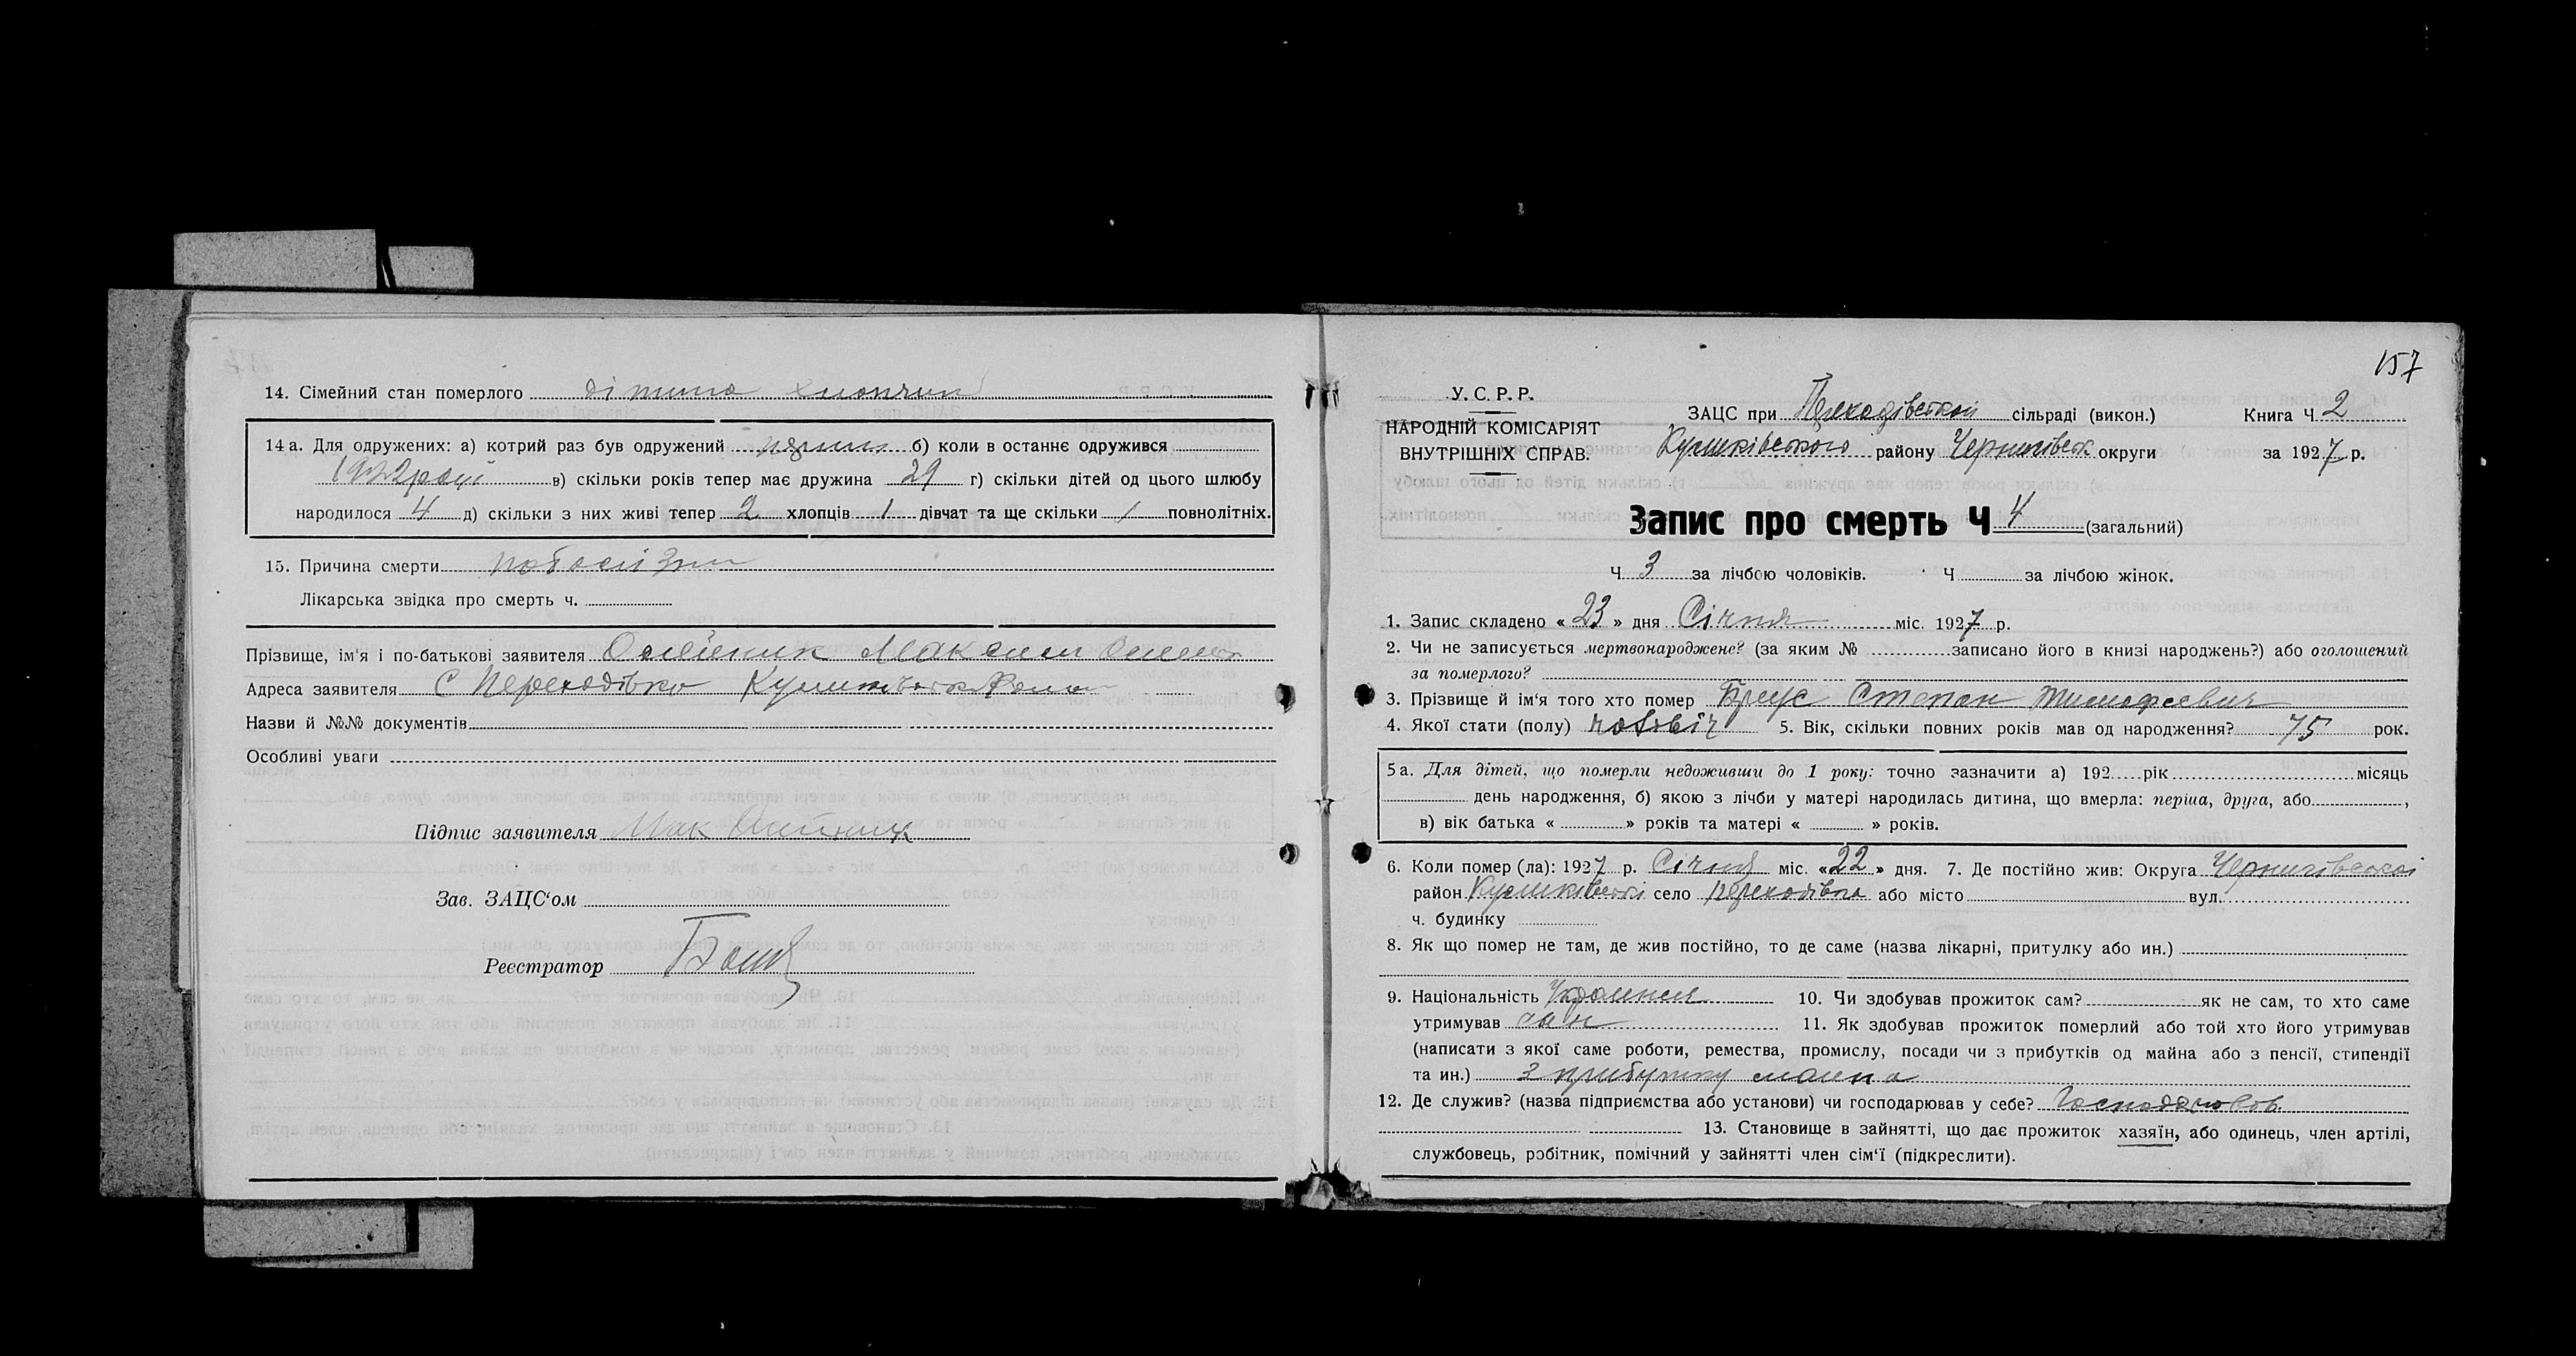 14. Сімейний стан померлого дітина хлопчик
14а. Для одружених: а) котрий раз був одружений б) коли в останнє одружився
1922 році в) скільки років тепер має дружина 29 г) скільки дітей од цього шлюбу
народилося 4 д) скільки з них живі тепер 2 хлопців 1 дівчат та ще скільки / повнолітніх.
15. Причина смерти
Лікарська звідка про смерть ч.
Прізвище, ім'я і по-батькові заявителя Олейник Максим
Адреса заявителя С Переходівка
Назви й №№ документів
Особливі уваги
Підпис заявителя Мак Олейник
Зав. ЗАЦС'ом
Реєстратор
157
У. С. Р. Р.
НАРОДНІЙ КОМІСАРІЯТ
ВНУТРІШНІХ СПРАВ.
ЗАЦС при Переходівської сільраді (викон.) Книга Ч. 2
району Чернигівськ округи за 1927 р.
Запис про смерть Ч 4 (загальний)
Ч 3 за лічбою чоловіків. Ч за лічбою жінок.
1. Запис складено « 23 » дня Січня міс. 1927 р.
2. Чи не записується мертвонароджене? (за яким № записано його в книзі народжень?) або оголошений
за померлого?
3. Прізвище й ім'я того хто помер Бреус Степан Тимофеевич
4. Якої стати (полу) чоловіч 5. Вік, скільки повних років мав од народження? 75 рок.
5а. Для дітей, що померли недоживши до 1 року: точно зазначити а) 192 рік місяць
день народження, б) якою з лічби у матері народилась дитина, що вмерла: перша, друга, або ,
в) вік батька « » років та матері « » років.
6. Коли помер (ла): 1927 р. Січня міс. «22» дня. 7. Де постійно жив: Округа Чернигівської
район село Переходівка або місто вул.
ч. будинку
8. Як що помер не там, де жив постійно, то де саме (назва лікарні, притулку або ин.)
9. Національність 10. Чи здобував прожиток сам? як не сам, то хто саме
утримував 11. Як здобував прожиток померлий або той хто його утримував
(написати з якої саме роботи, ремества, промислу, посади чи з прибутків од майна або з пенсії, стипендії
та ин.) З прибутку майна
12. Де служив? (назва підприємства або установи) чи господарював у себе? Господарював
13. Становище в зайнятті, що дає прожиток хазяїн, або одинець, член артілі,
службовець, робітник, помічний у зайнятті член сім'ї (підкреслити).